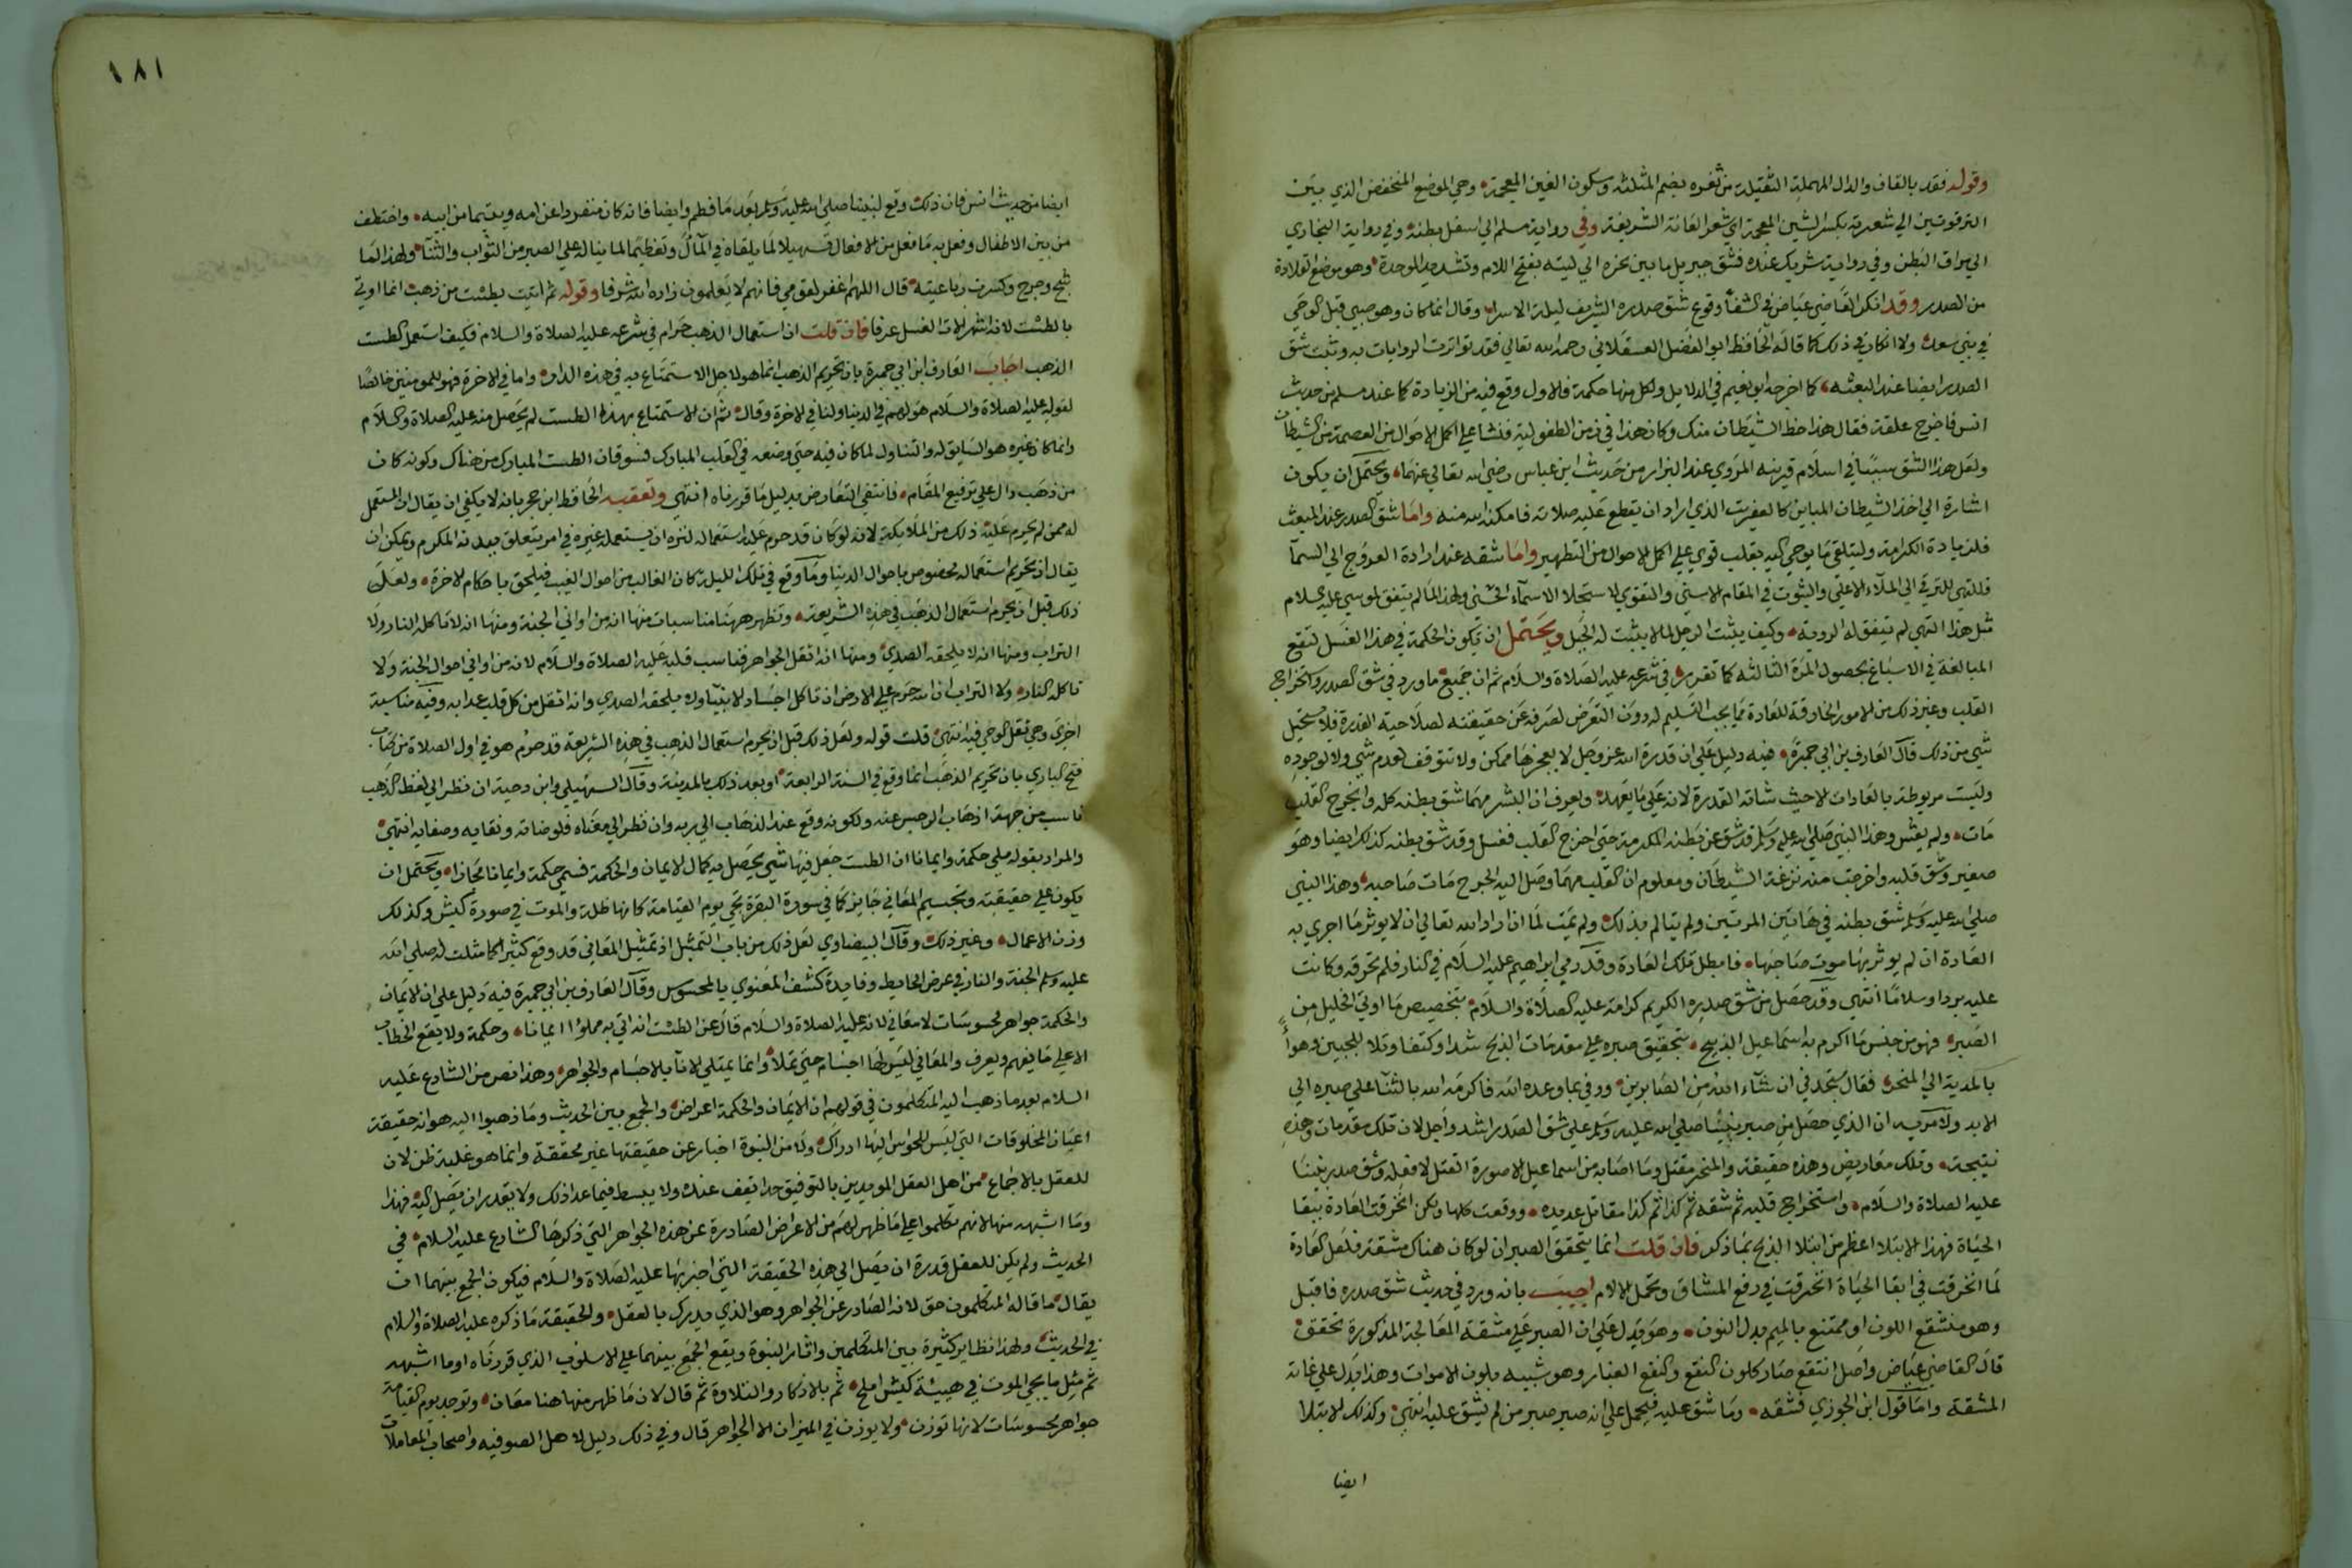 وقوله فقد بالقاف والدال المهملة الثقيلة من ثغره بضم المثلثه وسكون الغين المعجمة وهي الموضع المنخفض الذي بين
الترقوتين الي شعرته بكسر الشين المعجمة اي شعر العانة الشريفة وفي رواية مسلم الي اسفل بطنه وفي رواية البخاري
الي مراق البطن وفي رواية شريك عنده فشق جبريل ما بين نحره الي لبته بفتح اللام وتشديد الموحدة وهو موضع القلادة
من الصدر وقد انكر القاضي عياض في الشفا وقوع شق صدره الشريف ليلة الاسراء وقال انما كان وهو صبي قبل الوحي
في بني سعد ولا انكار في ذلك كما قاله الحافظ ابو الفضل العسقلاني رحمه الله تعالي فقد تواترت الروايات به وثبت شق
الصدر ايضا عند البعثه كما اخرجه ابو نعيم في الدلايل ولكل منها حكمة فالاول وقع فيه من الزيادة كما عند مسلم من حديث
انس فاخرج علقة فقال هذا حظ الشيطان منك وكان هذا في زمن الطفولية فنشا علي اكمل الاحوال من العصمة من الشيطان
ولعل هذا الشق سببا في اسلام قرينه المروي عند البزار من حديث ابن عباس رضي الله تعالي عنهما ويحتمل ان يكون
اشارة الي اخذ الشيطان المباين كالعفريت الذي اراد ان يقطع عليه صلاته فامكنه الله منه واما شق الصدر عند المبعث
فلزيادة الكرامة وليتلقي ما يوحي اليه بقلب قوي علي اكمل الاحوال من التطهير واما شقه عند ارادة العروج الي السمآ
فللتهي للترقي الي الملاء الاعلي والثبوت في المقام الاسني والتقوي لاستجلا الاسمآء الحسني ولهذا لما لم يتفق لموسي عليه السلام
مثل هذا التهي لم تتفق له الرويه وكيف يثبت الرجل لما لا يثبت له الجبل ويحتمل ان تكون الحكمة في هذا الغسل لتقع
المبالغة في الاسباغ بحصول المرة الثالثه كما تقرر في شرعه عليه الصلاة والسلام ثم ان جميع ما ورد في شق الصدر واخراج
القلب وغير ذلك من الامور الخارقة للعادة مما يجب التسليم له دون التعرض لصرفه عن حقيقته لصلاحية القدرة فلا يستحيل
شي من ذلك قال العارف بن ابي جمرة فيه دليل علي ان قدرة الله عز وجل لا يعجزها ممكن ولا تتوقف لعدم شي ولا لوجوده
وليست مربوطة بالعادات الا حيث شاته القدرة لانه علي ما يعهد ويعرف ان البشر مهما شق بطنه كله وانجرح القلب
مات ولم يعش وهذا النبي صلي الله عليه وسلم قد شق عن بطنه المكرمة حتي اخرج القلب فغسل وقد شق بطنه كذلك ايضا وهو
صغير وشق قلبه واخرجت منه نزغة الشيطان ومعلوم ان القلب مهما وصل اليه الجرح مات صاحبه وهذا النبي
صلي الله عليه وسلم شق بطنه في هاتين المرتين ولم يتالم بذلك ولم يمت لما ان اراد الله تعالي ان لا يوثر ما اجري به
العادة ان لم يوثر بها موت صاحبها فابطل تلك العادة وقد رمي ابراهيم عليه السلام في النار فلم تحرقه وكانت
عليه بردا وسلاما انتهي وقد حصل من شق صدره الكريم كرامة عليه الصلاة والسلام بتخصيص ما اوتي الخليل من
الصبر فهو من جنس ما اكرم به اسماعيل الذبيح بتحقيق صبره علي مقدمات الذبح شدا وكتفا وتلا للجبين وهوا
بالمدية الي المنحر فقال ستجدني ان شآء الله من الصابرين ووفي بما وعد الله فاكرمه الله بالثنا علي صبره الي
الابد ولا مرية ان الذي حصل من صبر نبينا صلي الله عليه وسلم علي شق الصدر اشد واجل لان تلك مقدمات وهذه
نتيجة وتلك معاريض وهذه حقيقة والمنحر مقتل وما اصابه من اسماعيل الا صورة القتل لا فعله وشق صدر نبينا
عليه الصلاة والسلام واستخراج قلبه ثم شقه ثم كذا ثم كذا مقاتل عديده ووقعت كلها ولكن انخرقت العادة ببقا
الحياة فهذا الابتلا اعظم من ابتلا الذبح بما ذكر فان قلت انما يتحقق الصبر ان لو كان هناك مشقة فلعل العادة
لما انخرقت في ابقا الحياة انخرقت في رفع المشاق وتحمل الالام اجيب بانه ورد في حديث شق صدره فاقبل
وهو منتقع اللون او ممتقع بالميم بدل النون وهو يدل علي ان الصبر علي مشقة المعالجة المذكورة تحقق
قال القاضي عياض واصل انتقع صار كلون النقع والنقع الغبار وهو شبيه بلون الاموات وهذا يدل علي غاية
المشقة واما قول ابن الجوزي فشقه وما شق عليه فيحمل علي انه صبر صبر من لم يشق عليه انتهي وكذلك الابتلا
ايضا
١٨١
ايضا من حديث انس فان ذلك وقع لنبينا صلي الله عليه وسلم بعد ما فطم وايضا فانه كان منفردا عن امه ويتيما من ابيه واختطف
من بين الاطفال وفعل به ما فعل من الافعال تسهيلا لما يلقاه في المآل وتعظيما لما يناله علي الصبر من الثواب والثنآ ولهذا لما
شج وجرح وكسرت رباعيته قال اللهم اغفر لقومي فانهم لا يعلمون زاده الله شرفا وقوله ثم اتيت بطست من ذهب انما اوتي
بالطست لانه اشهر الات الغسل عرفا فان قلت ان استعمال الذهب حرام في شرعه عليه الصلاة والسلام فكيف استعمل الطست
الذهب اجاب العارف ابن ابي جمرة بان تحريم الذهب انما هو لاجل الاستمتاع به في هذه الدار واما في الاخرة فهو للمومنين خالصا
لقوله عليه الصلاة والسلام هو لهم في الدنيا ولنا في الاخرة وقال ثم ان الاستمتاع بهذا الطست لم يحصل منه عليه الصلاة والسلام
وانما كان غيره هو السايق له والمتناول لما كان فيه حتي وضعه في القلب المبارك فسوقان الطست المبارك من هناك وكونه كان
من ذهب دال علي ترفيع المقام فانتفي التعارض بدليل ما قررناه انتهي وتعقبه الحافظ ابن حجر بانه لا يكفي ان يقال ان المستعمل
له ممن لم يحرم عليه ذلك من الملايكة لانه لو كان قد حرم عليه استعماله لنزه ان يستعمله غيره في امر يتعلق ببدنه المكرم ويمكن ان
يقال ان تحريم استعماله مخصوص باحوال الدنيا وما وقع في تلك الليلة كان الغالب من احوال الغيب فيلحق باحكام الاخرة ولعل
ذلك قبل ان يحرم استعمال الذهب في هذه الشريعة وتظهر ههنا مناسبات منها انه من اواني الجنة ومنها انه لا تاكله النار ولا
التراب ومنها انه لا يلحقه الصدي ومنها انه اثقل الجواهر فناسب قلبه عليه الصلاة والسلام لانه من اواني احوال الجنة ولا
تاكله النار ولا التراب ان الله حرم علي الارض ان تاكل اجساد الانبيآ ولا يلحقه الصدي وانه اثقل من كل قلب عدا به وفيه مناسبة
اخري وهي ثقل الوحي فيه انتهي قلت قوله ولعل ذلك قبل ان يحرم استعمال الذهب في هذه الشريعة قد جزم هو في اول الصلاة من كتاب
فتح الباري بان تحريم الذهب انما وقع في السنة الرابعة او بعد ذلك بالمدينة وقال السهيلي وابن دحية ان نظر الي لفظ الذهب
ناسب من جهة اذهاب الرجس عنه ولكونه وقع عند الذهاب الي ربه وان نظر الي معناه فلوضاته ونقايه وصفايه انتهي
والمراد بقوله ملي حكمة وايمانا ان الطست جعل فيها شي يحصل به كمال الايمان والحكمة فسمي حكمة وايمانا مجازا ويحتمل ان
يكون علي حقيقته وتجسيم المعاني جايز كما في سورة البقرة تجي يوم القيامة كانها ظلة والموت في صورة كبش وكذلك
وزن الاعمال وغير ذلك وقال البيضاوي لعل ذلك من باب التمثيل اذ تمثيل المعاني قد وقع كثيرا كما مثلت له صلي الله
عليه وسلم الجنة والنار في عرض الحايط وفايدة كشف المعنوي بالمحسوس وقال العارف بن ابي جمرة فيه دليل علي ان الايمان
والحكمة جواهر محسوسات لا معاني لانه عليه الصلاة والسلام قال عن الطست انه اتي به مملوا ايمانا وحكمة ولا يقع الخطاب
الا علي ما يفهم ويعرف والمعاني ليس لها اجسام حتي تملا وانما يمتلي الانآ بالاجسام والجواهر وهذا نص من الشارع عليه
السلام بعد ما ذهب اليه المتكلمون في قولهم ان الايمان والحكمة اعراض والجمع بين الحديث وما ذهبوا اليه هو ان حقيقة
اعيان المخلوقات التي ليس للحواس اليها ادراك ولا من النبوة اخبار عن حقيقتها غير محققة وانما هو غلبة ظن لان
للعقل بالاجماع من اهل العقل المويدين بالتوفيق حدا يقف عنده ولا يبسط فيما عدا ذلك ولا يقدر ان يصل اليه فهذا
وما اشبهه منها لانهم تكلموا علي ما ظهر لهم من الاعراض الصادرة عن هذه الجواهر التي ذكرها الشارع عليه السلام في
الحديث ولم يكن للعقل قدرة ان يصل الي هذه الحقيقة التي اخبر بها عليه الصلاة والسلام فيكون الجمع بينهما ان
يقال ما قاله المتكلمون حق لانه الصادر عن الجواهر وهو الذي يدرك بالعقل والحقيقة ما ذكره عليه الصلاة والسلام
في الحديث ولهذا نظاير كثيرة بين المتكلمين واثار النبوة ويقع الجمع بينهما علي الاسلوب الذي قررناه او ما اشبهه
ثم مثل ما يجي الموت في هيئة كبش املح ثم بالاذكار والتلاوة ثم قال لان ما ظهر منها هنا معان وتوجد يوم القيامة
جواهر محسوسات لانها توزن ولا يوزن في الميزان الا الجواهر قال وفي ذلك دليل لاهل الصوفيه واصحاب المعاملات